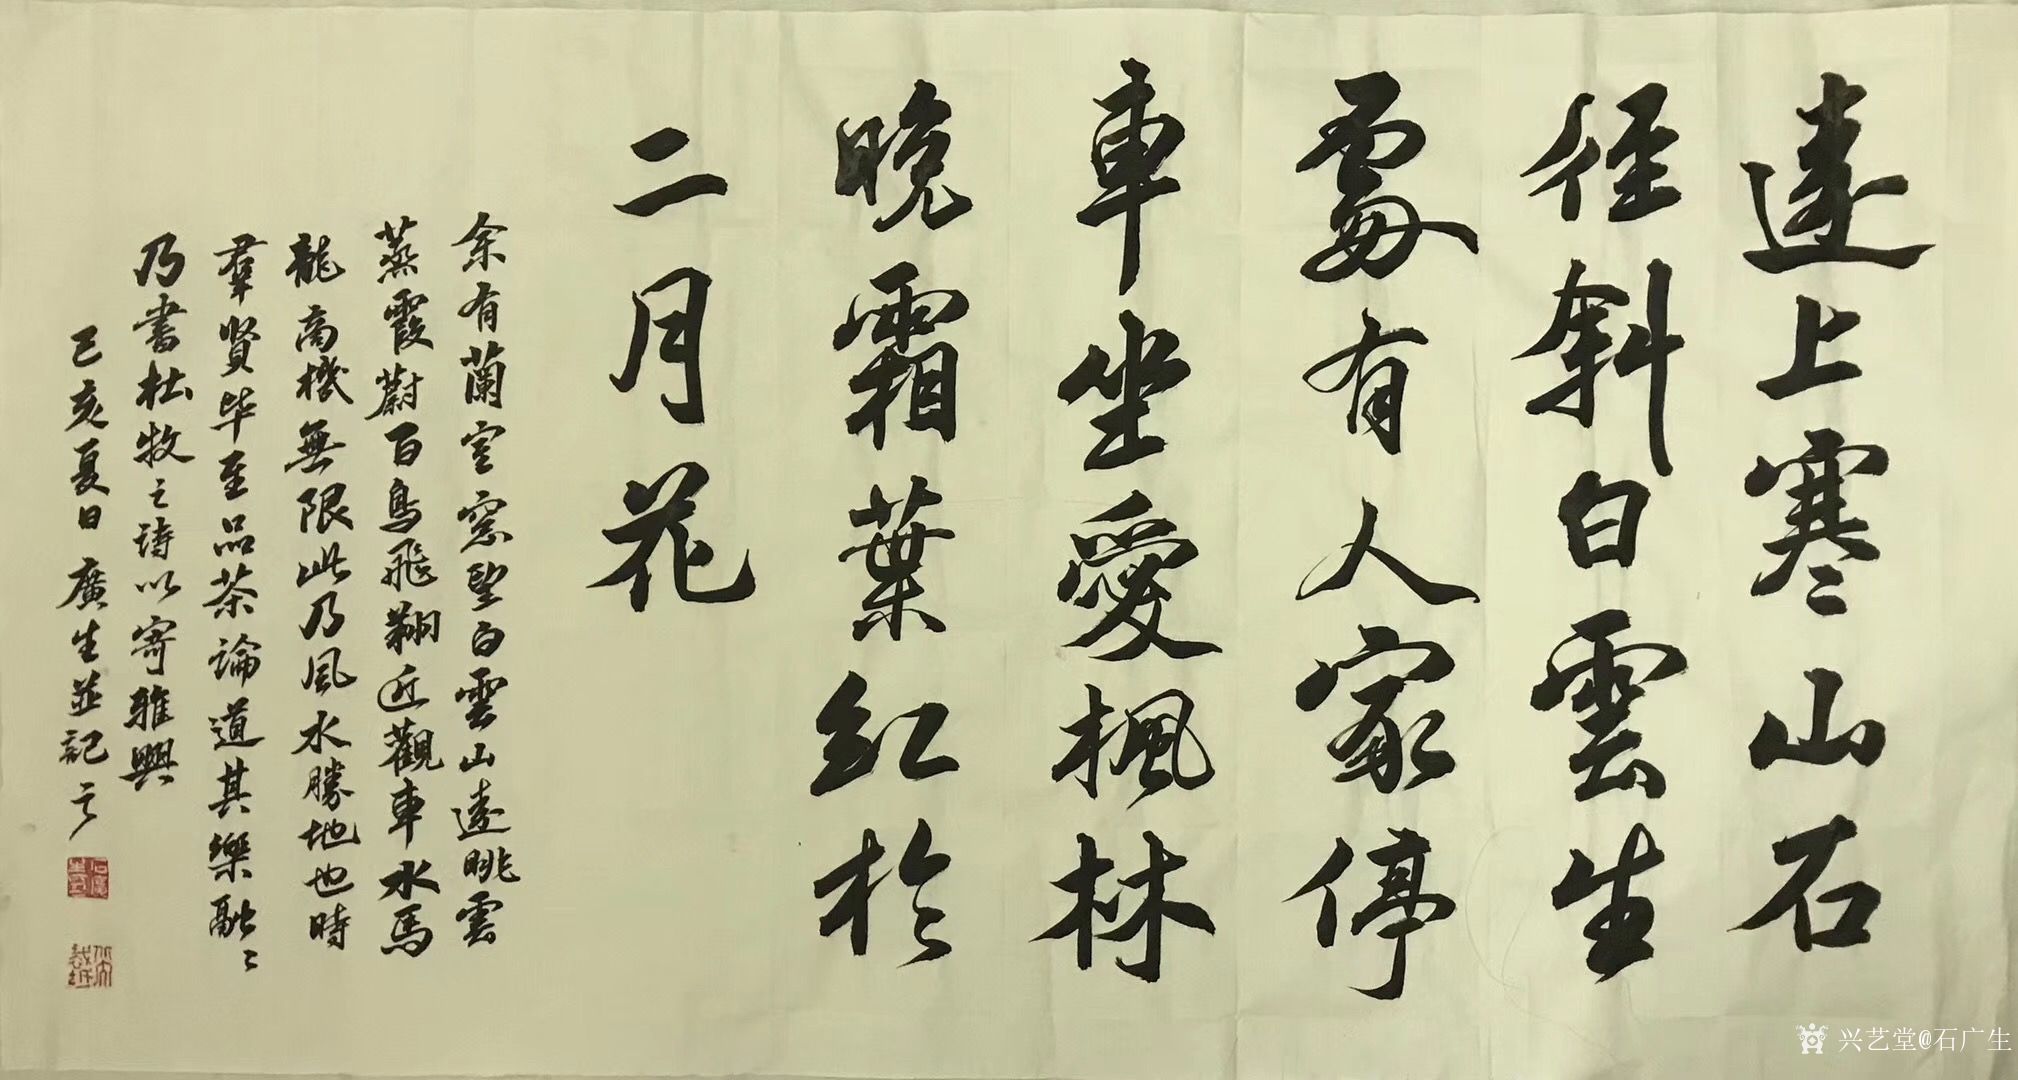 遠上寒山石
徑斜白雲生
處有人家停
車坐愛楓林
晚霜葉紅於
二月花
余有蘭室窓望白雲山遠眺雲
蒸霞蔚百鳥飛翔近觀車水馬
龍商機無限此乃風水勝地也時
羣賢毕至品茶論道其樂融〻
乃書杜牧之詩以寄雅興
己亥夏日廣生並記之
兴艺堂@石广生